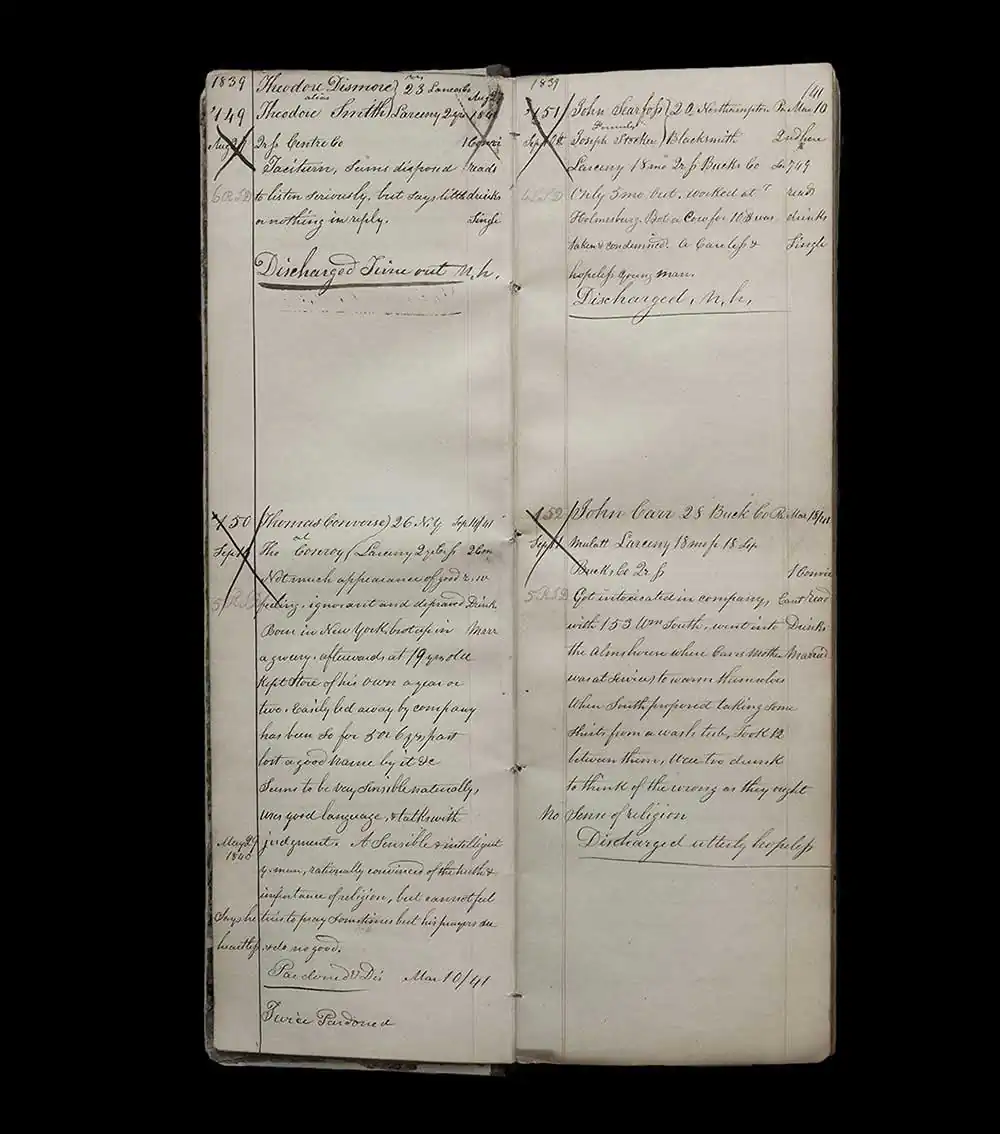 1839 Theodore Dismore 23 Lancaster
alias Aug 27
149 Theodore Smith Larceny 2 yrs 1841
Aug 27 2r fs Centre Co 1 Convic
Taciturn, Seems disposed reads
to listen seriously, but says little drinks
or nothing in reply. Single
Discharged Time out N. h.
150 Thomas Converse 26 N.Y Sep 14/41
al
Sep 14 Tho Conroy Larceny 2 y
Not much appearance of good
feeling, ignorant and depraved Drink
Born in New York, brot up in Marr
a grocery. afterwards at 19 yrs old
Kept Store of his own a year or
two. Easily led away by company
has been so for 5 or 6 yrs past
lost a good name by it &c
Seems to be very sensible naturally,
uses good language, & talks with
May 29 judgment. A Sensible & intelligent
1840
y. man, rationally convinced of the truth &
importance of religion, but cannot feel
Says he tries to pray sometimes but his prayers are
heartless & do no good.
Pardoned & Dis Mar 10/41
Twice Pardoned
1839 141
151 John Searfoss 22 Northampton Pa Mar 10
Formerly
Sept 18 Joseph Stocker Blacksmith 2nd here
Larceny 18 mo 2r fs Bucks Co 749
Only 5 mo out. worked at reads
Holmesburg. Bot a Cow for 10$ was drinks
taken & condemned. A Careless & Single
hopeless young man.
Discharged, N. h,
152 John Carr 28 Buck Co Pa Mar 18/41
Sept Mulatt Larceny 18 mo fr 18 Sep
Bucks Co 2r fs 1 Convic
Got intoxicated in company, Cant read
with 153 Wm South, went into Drinks
the Almshouse where Carrs Mother Married
was at Service, to warm themselves
When South proposed taking some
Shirts from a wash tub, Took 12
between them, Was too drunk
to think of the wrong as they ought
No Sense of religion
Discharged utterly hopeless